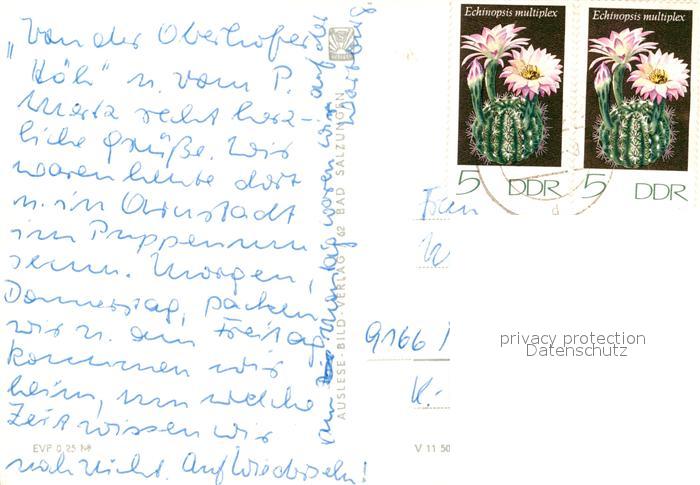 "Von der Oberhofer
Höh" u. vom P.
Marta recht herz-
liche Grüße. Wir
waren heute dort
u. in Arnstadt
im Puppenmu
seum. Morgen,
Donnerstag, packen
wir u. am Freitag
kommen wir
heim, um welche
Zeit wissen wir
noch nicht. Auf Wiedersehn!
am Montag waren wir auf der
Wartburg.
AUSLESE-BILD-VERLAG 62 BAD SALZUNGEN
EVP 0,25 M
V 11 50
Echinopsis multiplex
5 DDR
Echinopsis multiplex
5 DDR
Frau
9166
K.-
privacy protection
Datenschutz